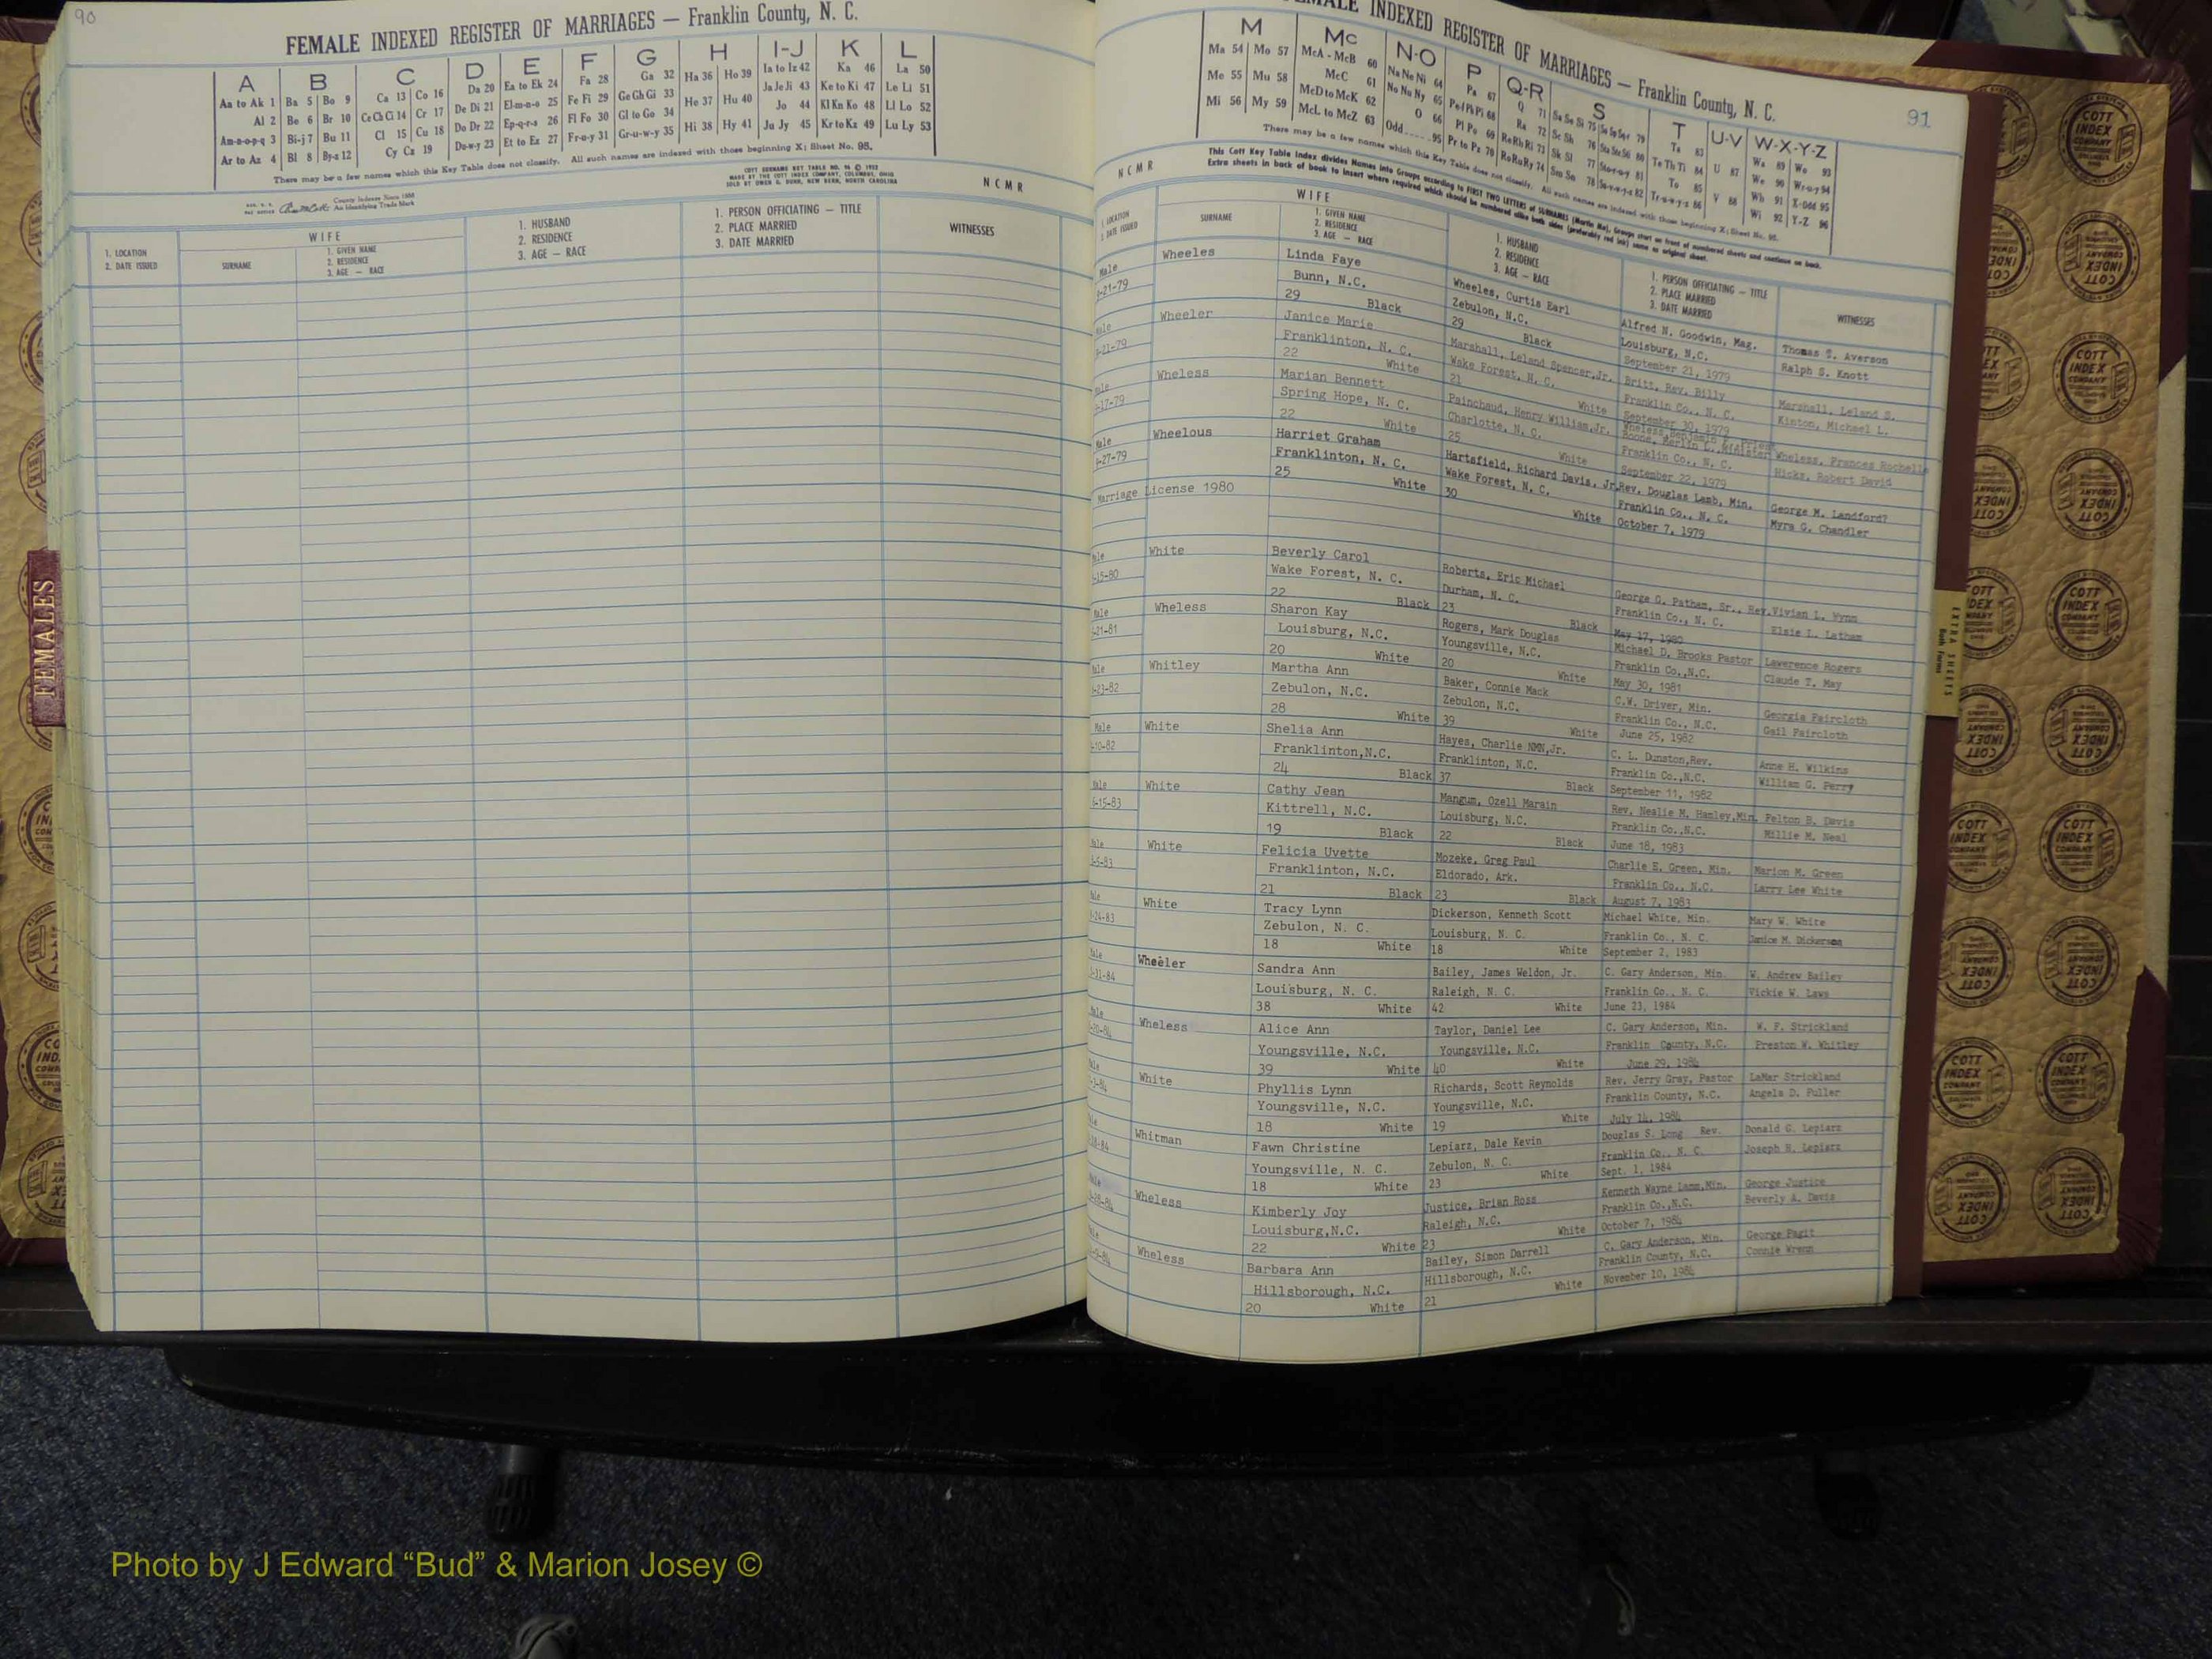 90
FEMALE INDEXED REGISTER OF MARRIAGES — Franklin County, N. C.
A B C D E F G H I-J K L
Aa to Ak 1 Ba 5 Bo 9 Ca 13 Co 16 Da 20 Ea to Ek 24 Fa 28 Ga 32 Ha 36 Ho 39 Ia to Iz 42 Ka 46 La 50
Al 2 Be 6 Br 10 Ce Ch Ci 14 Cr 17 De Di 21 El-m-n-o 25 Fe Fi 29 Ge Gh Gi 33 He 37 Hu 40 Ja Je Ji 43 Ke to Ki 47 Le Li 51
Am-n-o-p-q 3 Bi-j 7 Bu 11 Cl 15 Cu 18 Do Dr 22 Ep-q-r-s 26 Fl Fo 30 Gl to Go 34 Hi 38 Hy 41 Jo 44 Kl Kn Ko 48 Ll Lo 52
Ar to Az 4 Bl 8 By-z 12 Cy Cz 19 Du-w-y 23 Et to Ez 27 Fr-u-y 31 Gr-u-w-y 35 Ju Jy 45 Kr to Kz 49 Lu Ly 53
There may be a few names which this Key Table does not classify. All such names are indexed with those beginning X; Sheet No. 95.
COTT SURNAME KEY TABLE NO. 96 © 1952
MADE BY THE COTT INDEX COMPANY, COLUMBUS, OHIO
SOLD BY OWEN G. DUNN, NEW BERN, NORTH CAROLINA
N C M R
County Indexes Since 1888
An Identifying Trade Mark
1. LOCATION
2. DATE ISSUED
WIFE
SURNAME
1. GIVEN NAME
2. RESIDENCE
3. AGE — RACE
1. HUSBAND
2. RESIDENCE
3. AGE — RACE
1. PERSON OFFICIATING — TITLE
2. PLACE MARRIED
3. DATE MARRIED
WITNESSES
FEMALES
FEMALE INDEXED REGISTER OF MARRIAGES — Franklin County, N. C.
91
M Mc N-O P Q-R S T U-V W-X-Y-Z
Ma 54 Mo 57 McA - McB 60 Na Ne Ni 64 Pa 67 Q 71
Me 55 Mu 58 McC 61 No Nu Ny 65 Pe Ph Pi 68 Ra 72
Mi 56 My 59 McD to McK 62 O 66 Pl Po 69 Re Rh Ri 73
McL to McZ 63 Odd 95 Pr to Pz 70 Ro Ru Ry 74
Ta 83 Wa 89 Wo 93
Te Th Ti 84 U 87 We 90 Wr-u-y 94
To 85 Wh 91 X-Odd 95
Tr-u-w-y-z 86 V 88 Wi 92 Y-Z 96
There may be a few names which this Key Table does not classify. All such names are indexed with those beginning X; Sheet No. 95.
N C M R
This Cott Key Table Index divides Names into Groups according to FIRST TWO LETTERS of SURNAMES (Martin Ma). Groups start on front of numbered sheets and continue on back.
Extra sheets in back of book to insert where required which should be numbered alike both sides (preferably red ink) same as original sheet.
1. LOCATION
2. DATE ISSUED
WIFE
SURNAME
1. GIVEN NAME
2. RESIDENCE
3. AGE — RACE
1. HUSBAND
2. RESIDENCE
3. AGE — RACE
1. PERSON OFFICIATING — TITLE
2. PLACE MARRIED
3. DATE MARRIED
WITNESSES
Male Wheeles Linda Faye Wheeles, Curtis Earl Alfred N. Goodwin, Mag. Thomas T. Averson
-21-79 Bunn, N.C. Zebulon, N.C. Louisburg, N.C. Ralph S. Knott
29 Black 29 Black September 21, 1979
Male Wheeler Janice Marie Marshall, Leland Spencer,Jr. Britt, Rev. Billy Marshall, Leland S.
-21-79 Franklinton, N. C. Wake Forest, N. C. Franklin Co., N. C. Kinton, Michael L.
22 White 21 White September 30, 1979
Male Wheless Marian Bennett Painchaud, Henry William,Jr. Wheless, Benjamin F., Priest
Boone, Merlin L., Minister Wheless, Frances Rochelle
-17-79 Spring Hope, N. C. Charlotte, N. C. Franklin Co., N. C. Hicks, Robert David
22 White 25 White September 22, 1979
Male Wheelous Harriet Graham Hartsfield, Richard Davis, Jr. Rev. Douglas Lamb, Min. George M. Landford?
-27-79 Franklinton, N. C. Wake Forest, N. C. Franklin Co., N. C. Myra G. Chandler
25 White 30 White October 7, 1979
Marriage License 1980
Male White Beverly Carol Roberts, Eric Michael George G. Patham, Sr., Rev. Vivian L. Wynn
-15-80 Wake Forest, N. C. Durham, N. C. Franklin Co., N. C. Elsie L. Latham
22 Black 23 Black May 17, 1980
Male Wheless Sharon Kay Rogers, Mark Douglas Michael D. Brooks Pastor Lawerence Rogers
-21-81 Louisburg, N.C. Youngsville, N.C. Franklin Co.,N.C. Claude T. May
20 White 20 White May 30, 1981
Male Whitley Martha Ann Baker, Connie Mack C.W. Driver, Min. Georgia Faircloth
-23-82 Zebulon, N.C. Zebulon, N.C. Franklin Co., N.C. Gail Faircloth
28 White 39 White June 25, 1982
Male White Shelia Ann Hayes, Charlie NMN,Jr. C. L. Dunston,Rev. Anne H. Wilkins
-10-82 Franklinton,N.C. Franklinton, N.C. Franklin Co.,N.C. William G. Perry
24 Black 37 Black September 11, 1982
Male White Cathy Jean Mangum, Ozell Marain Rev. Nealie M. Hanley,Min. Felton B. Davis
-15-83 Kittrell, N.C. Louisburg, N.C. Franklin Co.,N.C. Millie M. Neal
19 Black 22 Black June 18, 1983
Male White Felicia Uvette Mozeke, Greg Paul Charlie E. Green, Min. Marion M. Green
-5-83 Franklinton, N.C. Eldorado, Ark. Franklin Co., N.C. Larry Lee White
21 Black 23 Black August 7, 1983
Male White Tracy Lynn Dickerson, Kenneth Scott Michael White, Min. Mary W. White
-24-83 Zebulon, N. C. Louisburg, N. C. Franklin Co., N. C. Janice M. Dickerson
18 White 18 White September 2, 1983
Male Wheeler Sandra Ann Bailey, James Weldon, Jr. C. Gary Anderson, Min. W. Andrew Bailey
-31-84 Louisburg, N. C. Raleigh, N. C. Franklin Co., N. C. Vickie W. Laws
38 White 42 White June 23, 1984
Male Wheless Alice Ann Taylor, Daniel Lee C. Gary Anderson, Min. W. F. Strickland
-20-84 Youngsville, N.C. Youngsville, N.C. Franklin County, N.C. Preston W. Whitley
39 White 40 White June 29, 1984
Male White Phyllis Lynn Richards, Scott Reynolds Rev. Jerry Gray, Pastor LaMar Strickland
-3-84 Youngsville, N.C. Youngsville, N.C. Franklin County, N.C. Angela D. Fuller
18 White 19 White July 14, 1984
Whitman Fawn Christine Lepiarz, Dale Kevin Douglas S. Long Rev. Donald G. Lepiarz
-18-84 Youngsville, N. C. Zebulon, N. C. Franklin Co., N. C. Joseph H. Lepiarz
18 White 23 White Sept. 1, 1984
Male Wheless Kimberly Joy Justice, Brian Ross Kenneth Wayne Lamm,Min. George Justice
-28-84 Louisburg,N.C. Raleigh, N.C. Franklin Co.,N.C. Beverly A. Davis
22 White 23 White October 7, 1984
Wheless Barbara Ann Bailey, Simon Darrell C. Gary Anderson, Min. George Pagit
-9-84 Hillsborough, N.C. Hillsborough, N.C. Franklin County, N.C. Connie Wrenn
20 White 21 White November 10, 1984
EXTRA SHEETS
COTT INDEX COMPANY
Photo by J Edward “Bud” & Marion Josey ©